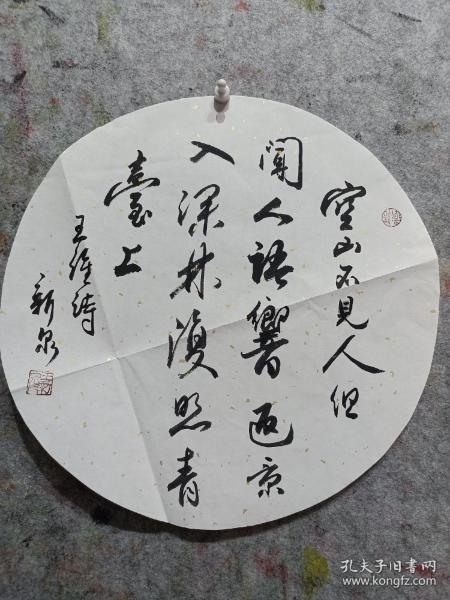 空山不見人但
聞人語響返京
入深林復照青
臺上
王維詩
新泉
孔夫子旧书网
www.kongfz.com